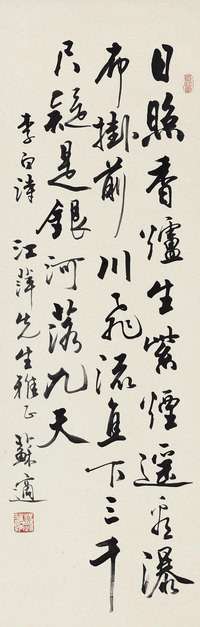 日照香爐生紫煙遥看瀑
布掛前川飛流直下三千
尺疑是銀河落九天
李白詩
江萍先生雅正
蘇適